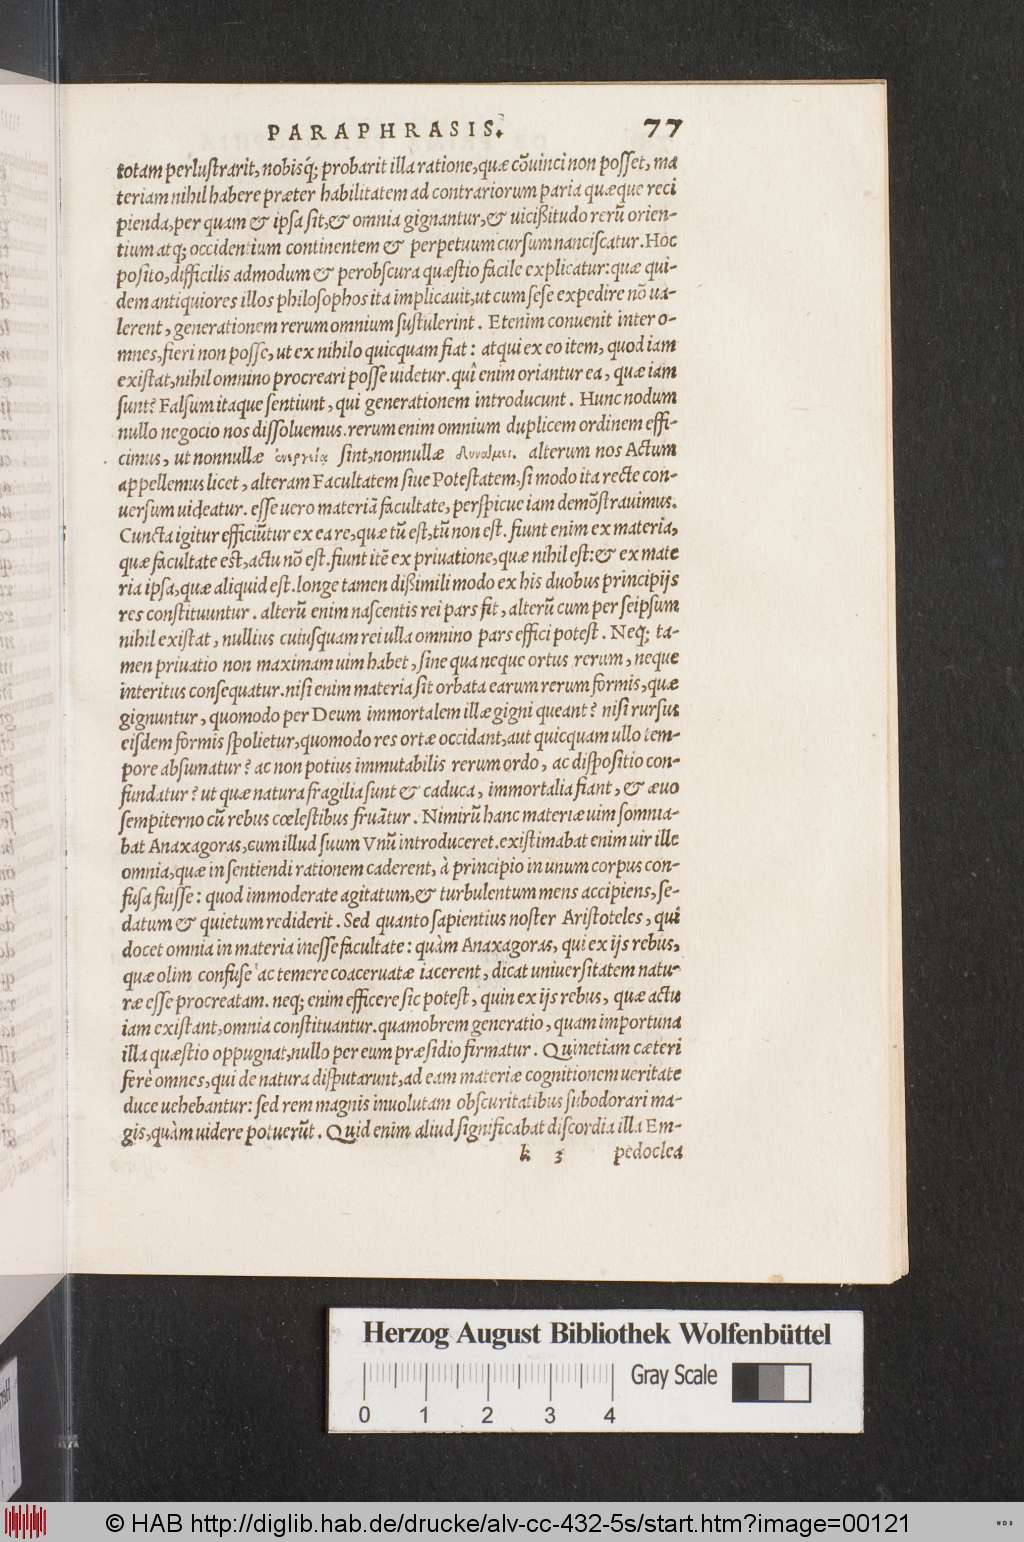 PARAPHRASIS. 77
totam perlustrarit, nobisq́; probarit illa ratione, quæ cõuinci non posset, ma
teriam nihil habere præter habilitatem ad contrariorum paria quæque reci
pienda, per quam & ipsa sit, & omnia gignantur, & uicißitudo rerũ orien-
tium atq; occidentium continentem & perpetuum cursum nanciscatur. Hoc
posito, difficilis admodum & perobscura quæstio facile explicatur: quæ qui-
dem antiquiores illos philosophos ita implicauit, ut cum sese expedire nõ ua-
lerent, generationem rerum omnium sustulerint. Etenim conuenit inter o-
mnes, fieri non posse, ut ex nihilo quicquam fiat: atqui ex eo item, quod iam
existat, nihil omnino procreari posse uidetur. quî enim oriantur ea, quæ iam
sunt? Falsum itaque sentiunt, qui generationem introducunt. Hunc nodum
nullo negocio nos dissoluemus. rerum enim omnium duplicem ordinem effi-
cimus, ut nonnullæ ἐνεργείᾳ sint, nonnullæ δυνάμει. alterum nos Actum
appellemus licet, alteram Facultatem siue Potestatem, si modo ita recte con-
uersum uideatur. esse uero materiã facultate, perspicue iam demõstrauimus.
Cuncta igitur efficiũtur ex ea re, quæ tũ est, tũ non est. fiunt enim ex materia,
quæ facultate est, actu nõ est. fiunt itẽ ex priuatione, quæ nihil est: & ex mate
ria ipsa, quæ aliquid est. longe tamen dißimili modo ex his duobus principijs
res constituuntur. alterũ enim nascentis rei pars fit, alterũ cum per seipsum
nihil existat, nullius cuiusquam rei ulla omnino pars effici potest. Neq; ta-
men priuatio non maximam uim habet, sine qua neque ortus rerum, neque
interitus consequatur. nisi enim materia sit orbata earum rerum formis, quæ
gignuntur, quomodo per Deum immortalem illæ gigni queant? nisi rursus
eisdem formis spolietur, quomodo res ortæ occidant, aut quicquam ullo tem-
pore absumatur? ac non potius immutabilis rerum ordo, ac dispositio con-
fundatur? ut quæ natura fragilia sunt & caduca, immortalia fiant, & æuo
sempiterno cũ rebus cœlestibus fruãtur. Nimirũ hanc materiæ uim somnia-
bat Anaxagoras, cum illud suum Vnũ introduceret. existimabat enim uir ille
omnia, quæ in sentiendi rationem caderent, à principio in unum corpus con-
fusa fuisse: quod immoderate agitatum, & turbulentum mens accipiens, se-
datum & quietum rediderit. Sed quanto sapientius noster Aristoteles, quî
docet omnia in materia inesse facultate: quàm Anaxagoras, qui ex ijs rebus,
quæ olim confuse ac temere coaceruatæ iacerent, dicat uniuersitatem natu-
ræ esse procreatam. neq; enim efficere sic potest, quin ex ijs rebus, quæ actu
iam existant, omnia constituantur. quamobrem generatio, quam importuna
illa quæstio oppugnat, nullo per eum præsidio firmatur. Quinetiam cæteri
ferè omnes, qui de natura disputarunt, ad eam materiæ cognitionem ueritate
duce uehebantur: sed rem magnis inuolutam obscuritatibus subodorari ma-
gis, quàm uidere potuerũt. Quid enim aliud significabat discordia illa Em-
k 3 pedoclea
Herzog August Bibliothek Wolfenbüttel
Gray Scale
0 1 2 3 4
© HAB http://diglib.hab.de/drucke/alv-cc-432-5s/start.htm?image=00121